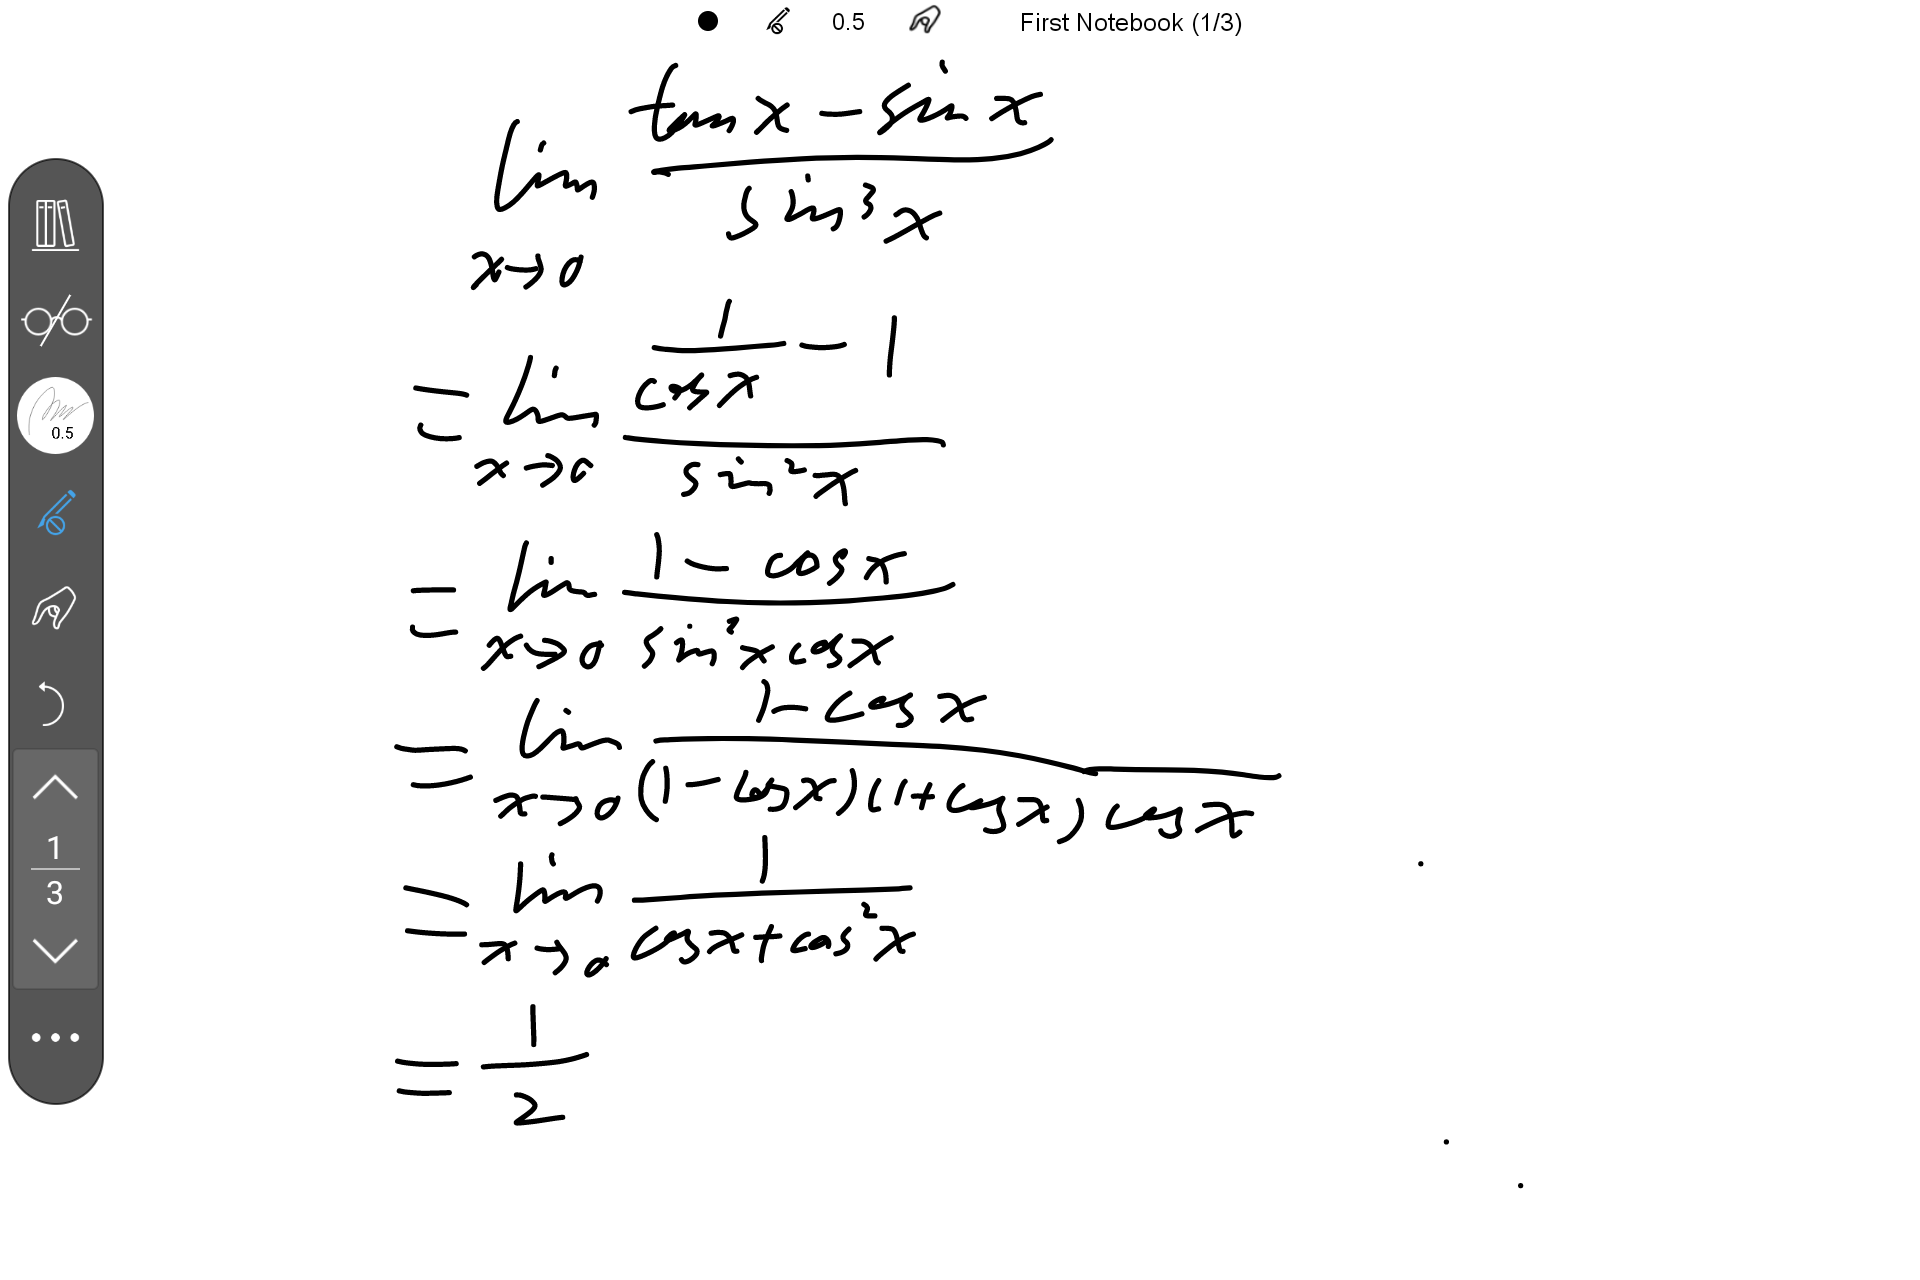 0.5 First Notebook (1/3)
lim x→0 (tan x − sin x) / (sin³ x)
= lim x→0 (1/cos x − 1) / (sin² x)
= lim x→0 (1 − cos x) / (sin² x cos x)
= lim x→0 (1 − cos x) / ((1 − cos x)(1 + cos x) cos x)
= lim x→0 1 / (cos x + cos² x)
= 1/2
0.5
1
3